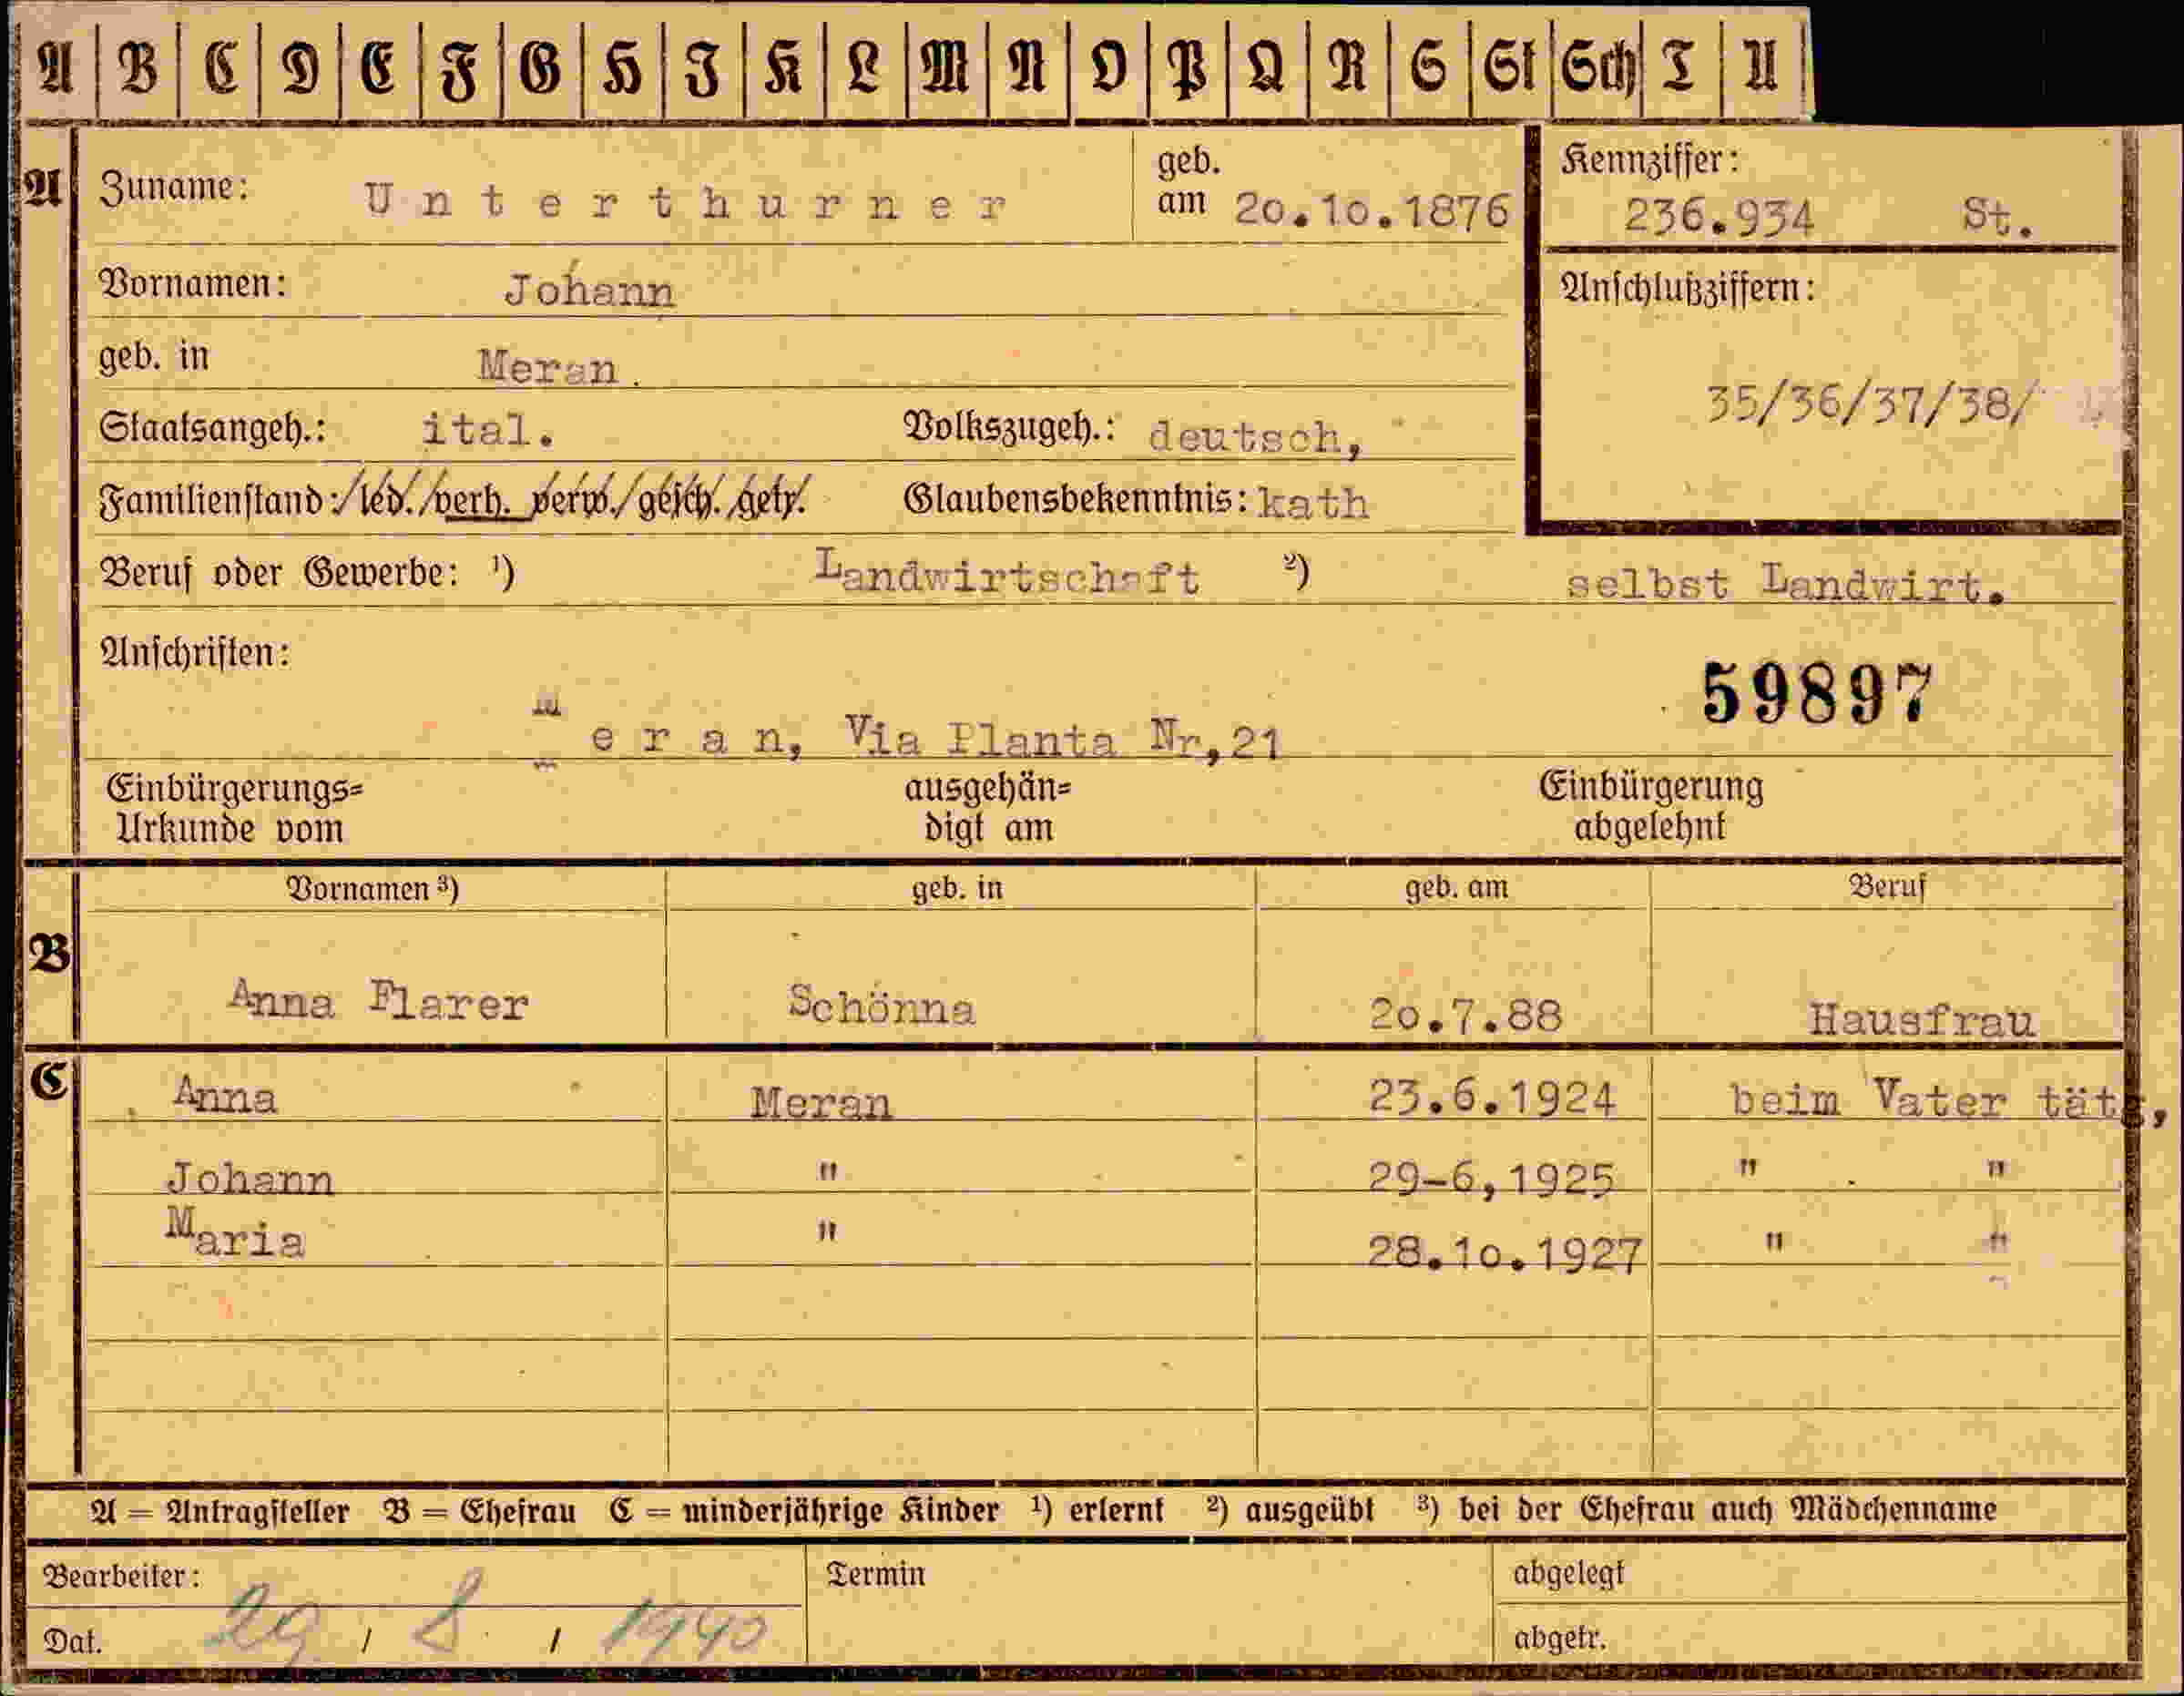 A B C D E F G H I K L M N O P Q R S St Sch T U
A Zuname: Unterthurner geb. am 20.10.1876 Kennziffer: 236.934 St.
Vornamen: Johann Anschlußziffern:
geb. in Meran.
35/36/37/38/
Staatsangeh.: ital. Volkszugeh.: deutsch,
Familienstand: led./verh. verw./gesch. getr. Glaubensbekenntnis: kath
Beruf oder Gewerbe: ¹) Landwirtschaft ²) selbst Landwirt.
Anschriften:
59897
M e r a n, Via Planta Nr,21
Einbürgerungs= ausgehän= Einbürgerung
Urkunde vom digt am abgelehnt
Vornamen ³) geb. in geb. am Beruf
B
Anna Flarer Schönna 20.7.88 Hausfrau
C Anna Meran 23.6.1924 beim Vater tätg,
Johann " 29-6,1925 " "
Maria " 28.10.1927 " "
A = Antragsteller B = Ehefrau C = minderjährige Kinder ¹) erlernt ²) ausgeübt ³) bei der Ehefrau auch Mädchenname
Bearbeiter: Termin abgelegt
Dat. 29 / 8 / 1940 abgetr.